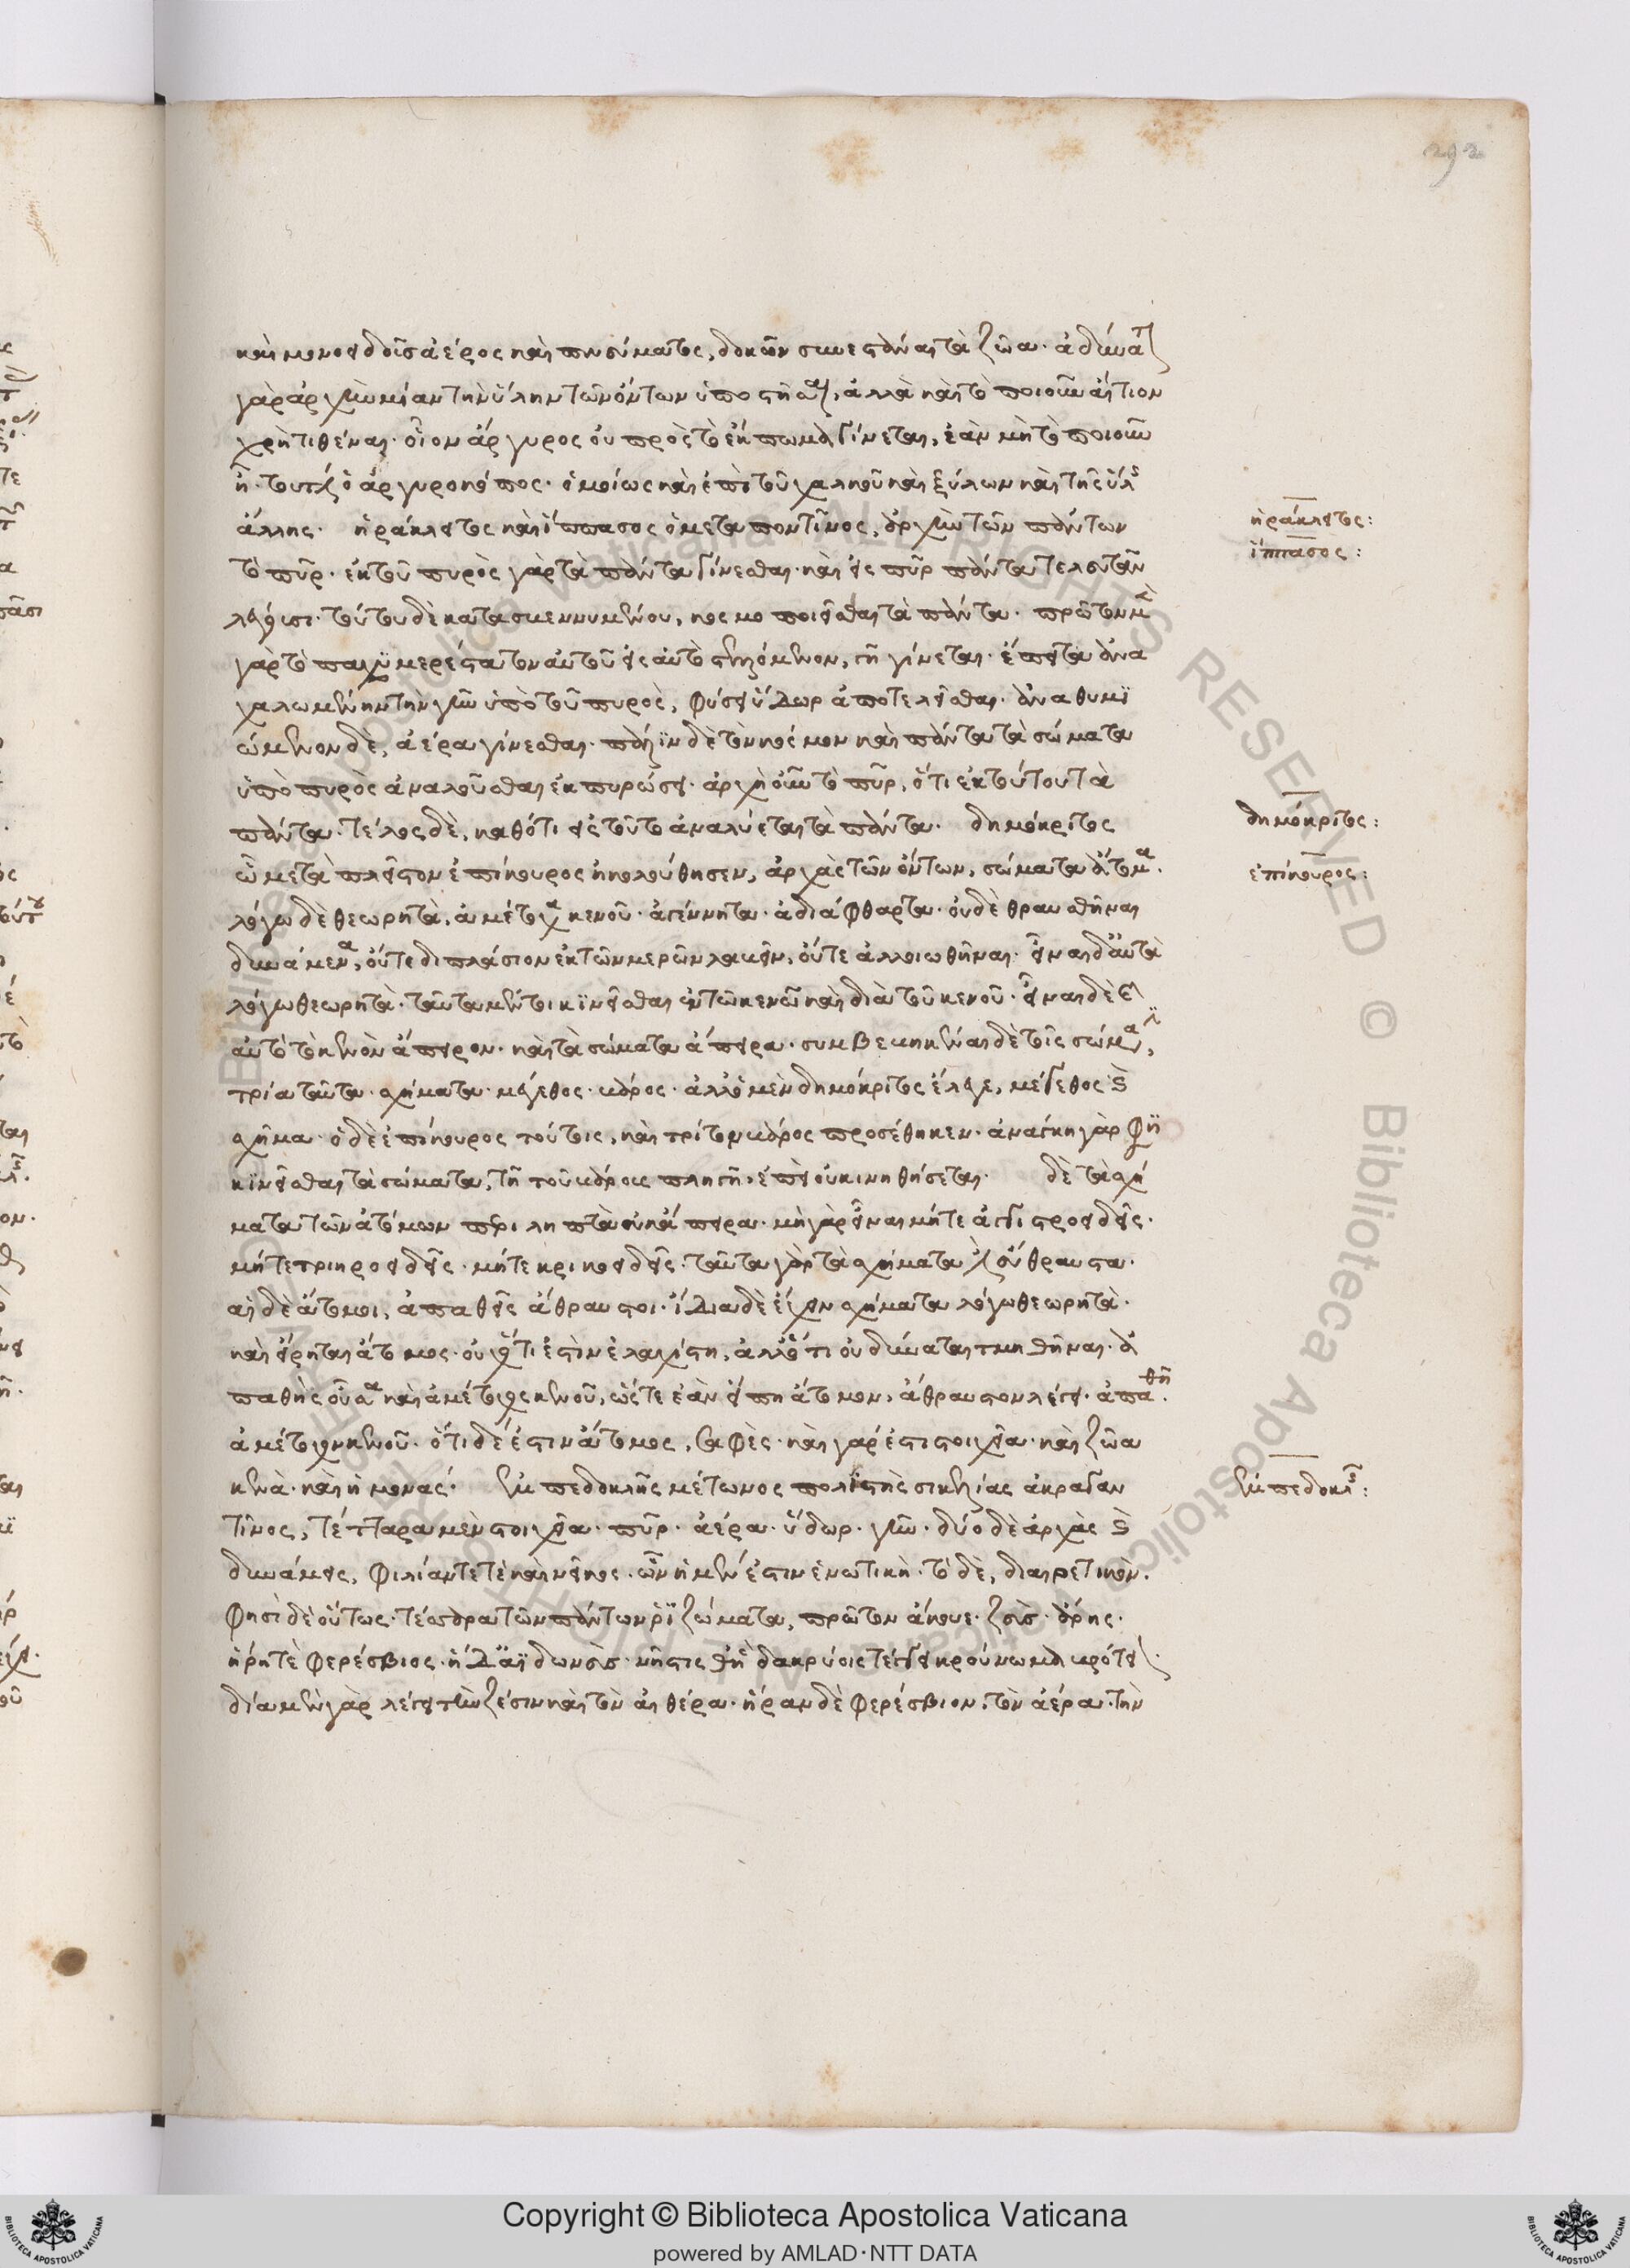 292
καὶ μονοειδοῦς ἀέρος καὶ πνεύματος, δοκῶν συνεστάναι τὰ ζῶα· ἀδύνατ
γὰρ ἀρχὴν μίαν τὴν ὕλην τῶν ὄντων ὑποστῆναι, ἀλλὰ καὶ τὸ ποιοῦν αἴτιον
χρὴ τιθέναι· οἷον ἄργυρος οὐ πρὸς τὸ ἔκπωμα γίνεται, ἐὰν μὴ τὸ ποιοῦν
ἦ· τουτέστιν ὁ ἀργυροκόπος· ὁμοίως καὶ ἐπὶ τοῦ χαλκοῦ καὶ ξύλων καὶ τῆς ὕλης
ἄλλης· ἡράκλειτος καὶ ἵππασος ὁ μεταποντῖνος, ἀρχὴν τῶν πάντων
τὸ πῦρ· ἐκ τοῦ πυρὸς γὰρ τὰ πάντα γίνεσθαι· καὶ εἰς πῦρ πάντα τελευτᾶν
λέγουσι· τούτου δὲ κατασβεννυμένου, κοσμοποιεῖσθαι τὰ πάντα· πρῶτον μὲν
γὰρ τὸ παχυμερέστατον αὐτοῦ εἰς αὐτὸ συστελλόμενον, γῆ γίνεται· ἔπειτα ἀνα
χαλωμένην τὴν γῆν ὑπὸ τοῦ πυρὸς, φύσει ὕδωρ ἀποτελεῖσθαι· ἀναθυμϊ
ώμενον δὲ, ἀέρα γίνεσθαι· πάλϊν δὲ τὸν κόσμον καὶ πάντα τὰ σώματα
ὑπὸ πυρὸς ἀναλοῦσθαι ἐκπυρώσει· ἀρχὴ οὖν τὸ πῦρ, ὅτι ἐκ τούτου τὰ
πάντα· τέλος δὲ, καθότι εἰς τοῦτο ἀναλύεται τὰ πάντα· δημόκριτος
ὧ μετὰ πλεῖστον ἐπίκουρος ἠκολούθησεν, ἀρχὰς τῶν ὄντων, σώματα ἄτομα·
λόγω δὲ θεωρητὰ, ἀμέτοχα κενοῦ· ἀγέννητα· ἀδιάφθαρτα· οὐδὲ θραυσθῆναι
δυνάμενα, οὔτε διπλάσιον ἐκ τῶν μερῶν λακεῖν, οὔτε ἀλλοιωθῆναι· εἶναι δ' αὐτὰ
λόγω θεωρητὰ· ταῦτα μέντοι κϊνεῖσθαι ἐν τῶ κενῶ καὶ διὰ τοῦ κενοῦ· εἶναι δὲ ϗ
αὐτὸ τὸ κενὸν ἄπειρον· καὶ τὰ σώματα ἄπειρα· συμβεβηκέναι δὲ τοῖς σώμασι,
τρία ταῦτα· σχήματα· μέγεθος· βάρος· ἀλλ' ὁ μὲν δημόκριτος ἔλεγε, μέγεθος ϗ
σχῆμα· ὁ δὲ ἐπίκουρος τούτοις, καὶ τρίτον βάρος προσέθηκεν· ἀνάγκη γὰρ φη
κϊνεῖσθαι τὰ σώματα, τῆ τοῦ βάρους πληγῆ· ἐπεὶ οὐ κινηθήσεται· δὲ τὰ σχή
ματα τῶν ἀτόμων περιληπτὰ οὐκ ἄπειρα· μὴ γὰρ εἶναι μήτε ἀγκιστροειδεῖς·
μήτε τριηροειδεῖς· μήτε κρικοειδεῖς· ταῦτα γὰρ τὰ σχήματα εὔθραυστα·
αἱ δὲ ἄτομοι, ἀπαθεῖς ἄθραυστοι· ἴδια δὲ ἔχειν σχήματα λόγω θεωρητὰ·
καὶ εἴρηται ἄτομος· οὐχ ὅτι ἐστὶν ἐλαχίστη, ἀλλ' ὅτι οὐ δύναται τμηθῆναι· ἀ
παθὴς οὖσα καὶ ἀμέτοχος κενοῦ, ὥστε ἐὰν εἴπη ἄτομον, ἄθραυστον λέγει· ἀπαθῆ·
ἀμέτοχον κενοῦ· ὅτι δέ ἐστιν ἄτομος, σαφὲς· καὶ γάρ ἐστι στοιχεῖα· καὶ ζῶα
κενὰ· καὶ ἡ μονάς· ἐμπεδοκλῆς μέτωνος πολίτης σικελίας ἀκραγαν
τῖνος, τέτταρα μὲν στοιχεῖα· πῦρ· ἀέρα· ὕδωρ· γῆν· δύο δὲ ἀρχὰς ϗ
δυνάμεις, φιλίαν τε τὲ καὶ νεῖκος· ὧν ἡ μὲν ἐστιν ἑνωτικὴ· τὸ δὲ, διαιρετικὸν·
φησὶ δὲ οὕτως· τέσσαρα τῶν πάντων ῥϊζώματα, πρῶτον ἄκουε· ζεὺς· ἄρης·
ἥρη τὲ φερέσβιος· ἠδ' ἀϊδωνεὺς· νῆστις θ' ἣ δακρύοις τέγγει κρούνωμα βρότει·
δία μὲν γὰρ λέγει τὴν ζέσιν καὶ τὸν αἰθέρα· ἥραν δὲ φερέσβιον, τὸν ἀέρα· τὴν
ἡράκλειτος:
ἵππασος:
δημόκριτος:
ἐπίκουρος:
ἐμπεδοκλῆς:
Biblioteca Apostolica Vaticana ALL RIGHTS RESERVED ©
Copyright © Biblioteca Apostolica Vaticana
powered by AMLAD·NTT DATA